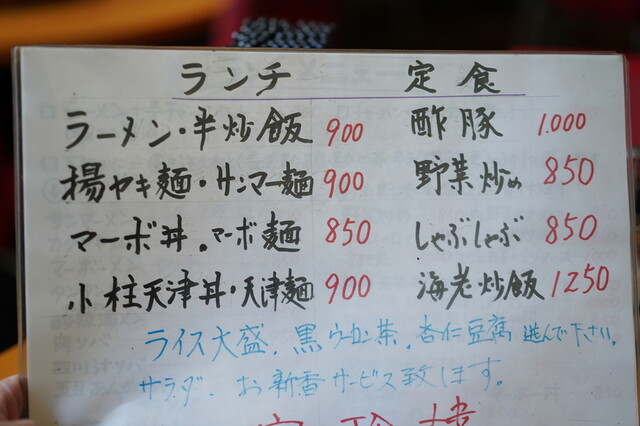 ランチ 定食
ラーメン・半炒飯 900 酢豚 1.000
揚ヤキ麺・サンマー麺 900 野菜炒め 850
マーボ丼・マーボ麺 850 しゃぶしゃぶ 850
小柱天津丼・天津麺 900 海老炒飯 1250
ライス大盛、黒ウーロン茶、杏仁豆腐 選んで下さい。
サラダ、お新香サービス致します。